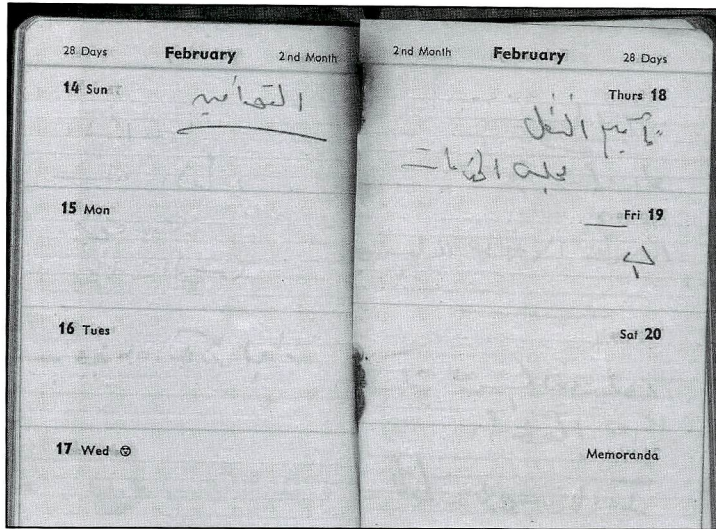 28 Days February 2nd Month
14 Sun
التصاميم
15 Mon
16 Tues
17 Wed
2nd Month February 28 Days
Thurs 18
تأمين النقل
Fri 19
Sat 20
Memoranda